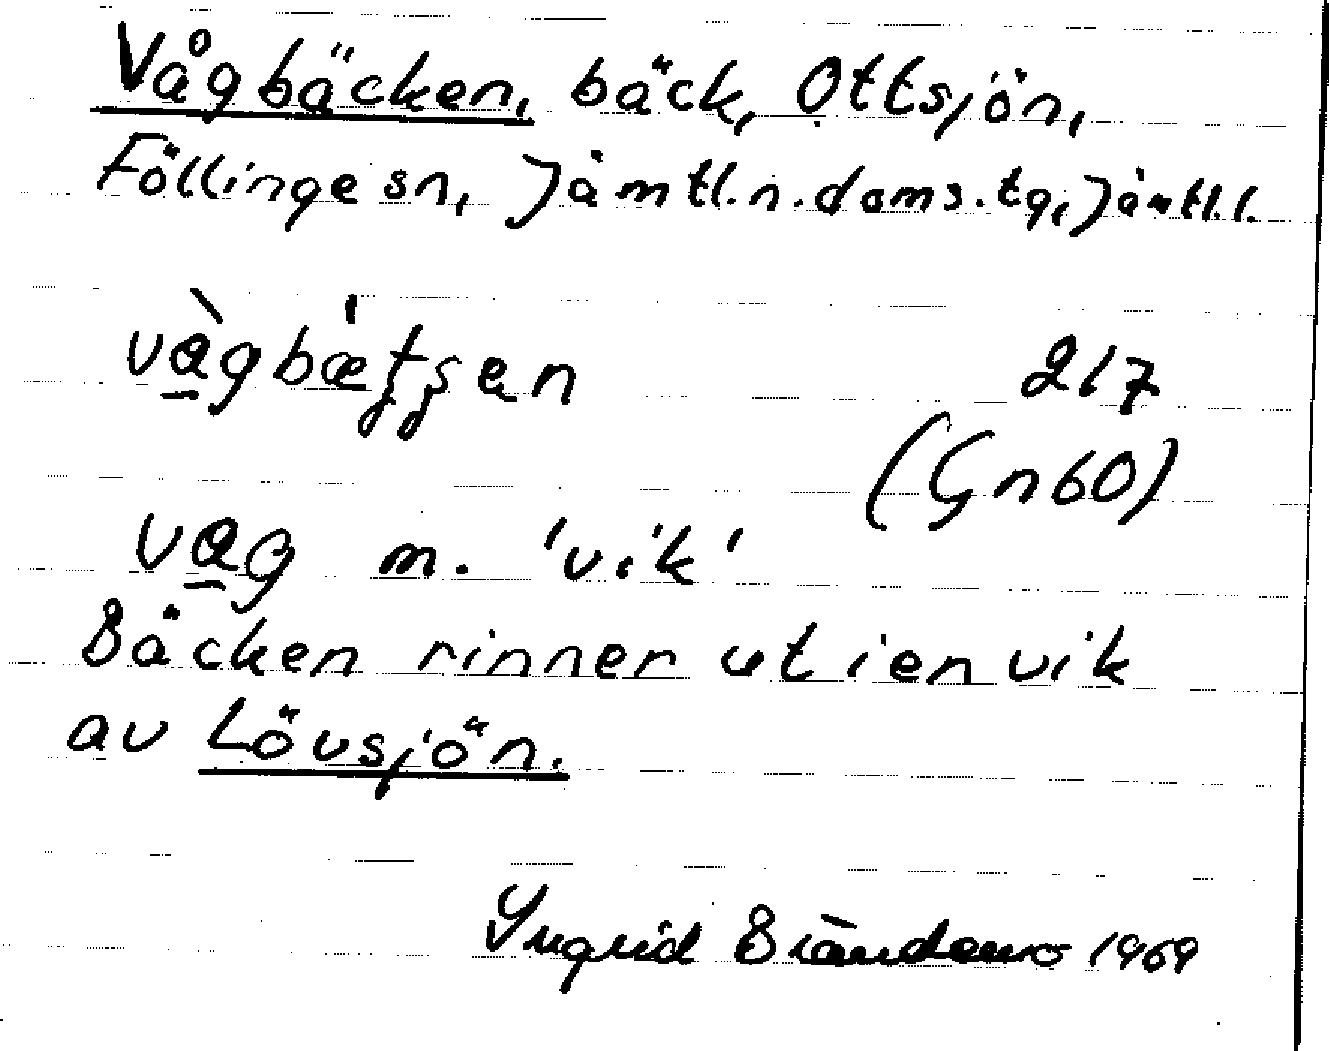 Vågbäcken, bäck, Ottsjön,
Föllinge sn, Jämtl.n.doms.tg, Jämtl.l.
217
(Gn60)
m. 'vik'
Bäcken rinner ut i en vik
av Lövsjön.
Ingrid Brändewo 1969